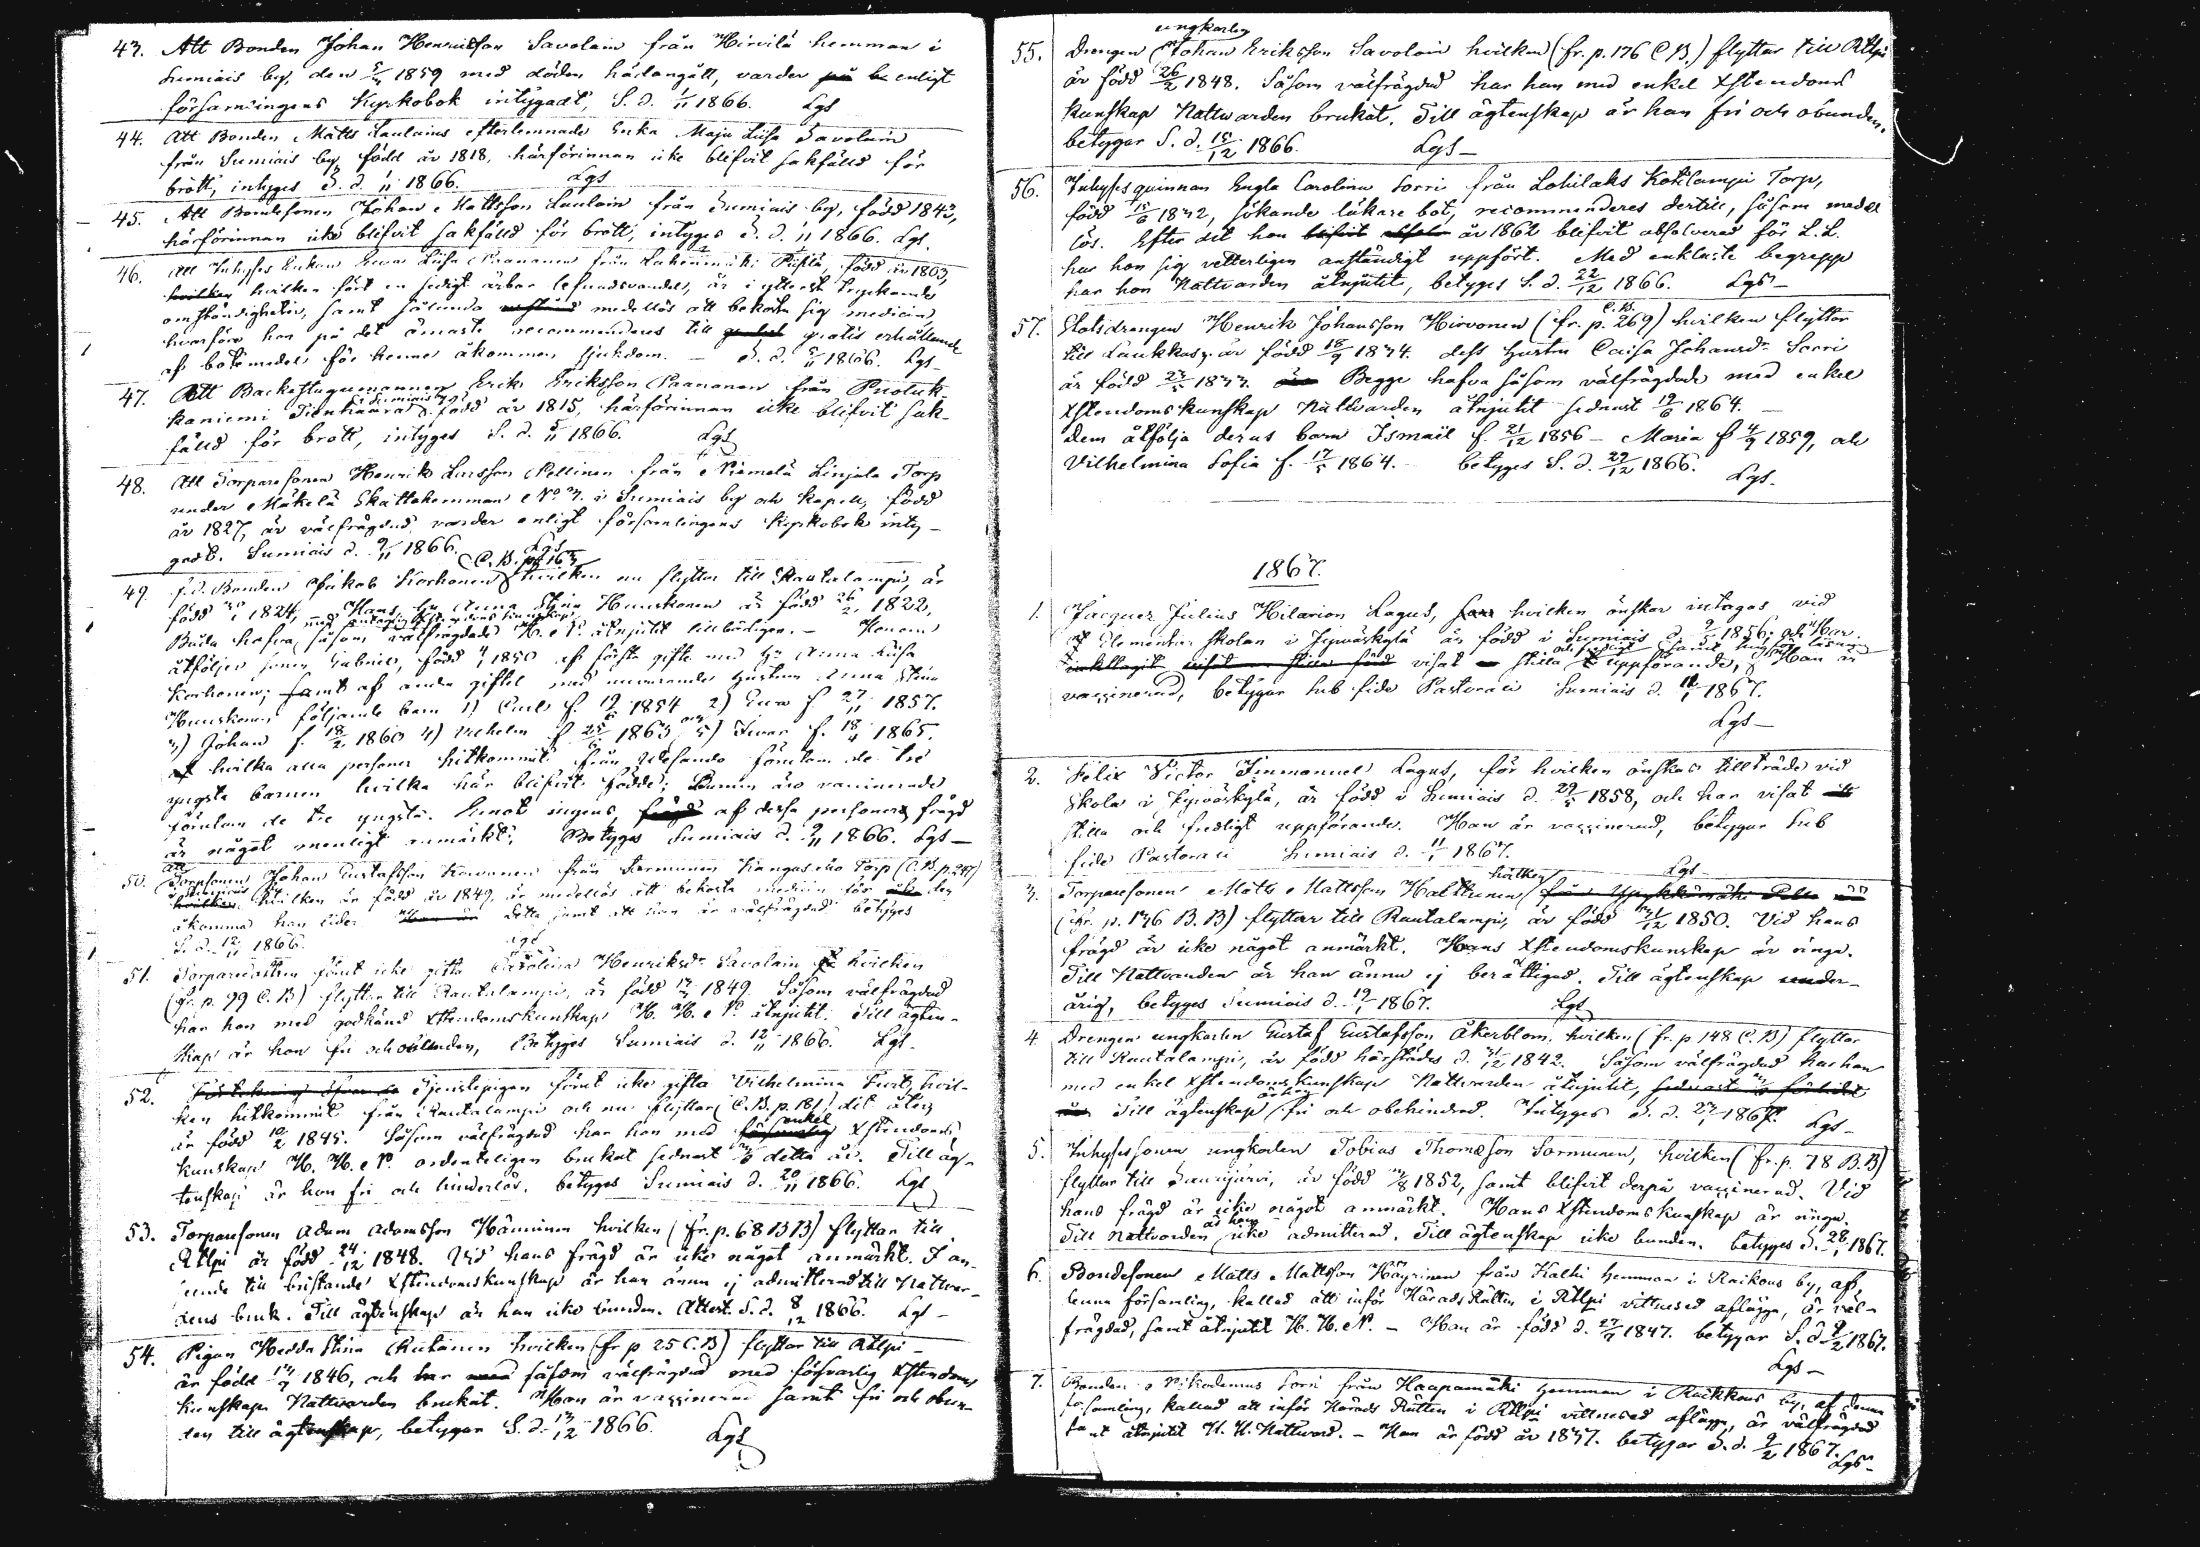 43. Att Bonden Johan Henriksson Savolain från Hirvilä hemman i
Sumiais by, den 5/4 1859 med döden hädangått, varder på be enligt
församlingens Kyrkobok intygadt, S. d. 1/11 1866. Lgs
44. Att Bonden Matts Laulains efterlemnade Enka Maja Lisa Savolain
från Sumiais by, född år 1818, härförinnan icke blifvit sakfälld för
brott, intyges S. d. 1/11 1866. Lgs
45. Att Bondesonen Johan Mattsson Laulain från Sumiais by, född 1843,
härförinnan icke blifvit sakfälld för brott, intyges S. d. 1/11 1866. Lgs.
46. Att Inhyses Enkan Ewa Lisa Paananen från född år 1803,
hvilken hvilken fört en sedigt ärbar lefnadsvandel, är i ytterst tryckande
omständigheter, samt sålunda medellös att bekosta sig medicin,
hvarföre hon på det ömaste recommenderas till gratis erhållande
af botemedel för henne åkommen sjukdom. – S. d. 5/11 1866. Lgs
47. Att Backstugumannen Erik Eriksson Paananen från Puoluk-
Sumiais by
kaniemi född år 1815, härförinnan icke blifvit sak-
fälld för brott, intyges S. d. 5/11 1866. Lgs
48. Att Torparesonen Henrik Larsson Pellinen från Niemelä Linjala Torp
under Mäkelä Skattehemman No 3. i Sumiais by och Kapell, född
år 1827, är välfrägdad, varder enligt församlingens Kyrkobok inty-
gadt. Sumiais d. 9/11 1866. Lgs
C. B. p. 163
49. f.d. Bonden Jakob Korhonen hvilken nu flyttar till Rautalampi, är
född 1824, Hans Hu Anna Stina Hunskonen är född 26/2 1822,
Båda hafva såsom välfrägdade H. N. åtnjutit tillbörligen. – Honom
åtföljer sonen Gabriel, född 1850 af första gifte med Hu Anna Lisa
Korhonen; samt af andra giftet med nuvarande Hustrun Anna Stina
Hunskonen följande barn 1) Carl f. 19/6 1854 2) Ewa f 27/11 1857.
3) Johan f. 18/2 1860 4) Vilhelm f 25/5 1863 och 5) Iwar f. 18/4 1865.
af hvilka alla personer hitkommit från förutom de tre
yngsta barnen hvilka här blifvit födde; Barnen äro vaccinerade
förutom de tre yngsta. Emot ingens frägd af dessa personers frägd
är något menligt anmärkt; Betyges Sumiais d. 9/11 1866. Lgs –
50. Att Torpsonen Johan Gustafsson från Kangasaho Torp (C. B. p. 247)
hvilken hvilken är född år 1849, är medellös att bekosta medicin för den
åkomma han lider detta samt att han är välfrägdad betyges
S. d. 12/11 1866. Lgs
51. Torparedottern jemt icke gifta Carolina Henriksdr Savolain hvilken
(fr. p. 99 C. B) flyttar till Rautalampi, är född 17/7 1849. Såsom välfrägdad
har hon med godkänd Xstendomskunskap H. H. N. åtnjutit. Till ägten-
skap är hon fri och obunden, Betyges Sumiais d. 12/11 1866. Lgs.
52. Tjenstepigan jemt icke gifta Vilhelmina hvil-
ken hitkommit från Rautalampi och nu flyttar (C. B. p. 181) dit åter
är född 10/2 1845. Såsom välfrägdad har hon med försvarlig enkel Xstendoms
kunskap H. H. N. ordenteligen brukat sednast detta år. Till äg-
tenskap är hon fri och hinderlös, betyges Sumiais d. 20/11 1866. Lgs
53. Torparesonen Adam Adamsson Hänninen hvilken (fr. p. 68 B B) flyttar till
Rtlpi är född 24/12 1848. Vid hans frägd är icke något anmärkt. I an-
seende till bristande Xstendomskunskap är han ännu ej admitterad till Nattvar-
dens bruk. Till ägtenskap är han icke bunden. Attest. S. d. 8/12 1866. Lgs –
54. Pigan Hedda Stina Rutanen hvilken (fr p 25 C. B) flyttar till Rtlpi –
är född 13/9 1846, och har såsom välfrägdad med försvarlig Xstendoms
kunskap Nattvarden brukat. Hon är vaccinerad samt fri och obun-
den till ägtenskap, betygar S. d. 13/12 1866. Lgs
ungkarlen
55. Drengen Johan Eriksson Savolain hvilken (fr. p. 176 C B.) flyttar till Rtlpi
är född 26/2 1848. Såsom välfrägdad har han med enkel Xstendoms
kunskap Nattvarden brukat. Till ägtenskap är han fri och obunden,
betygar S. d. 15/12 1866. Lgs –
56. Inhyses qvinnan Engla Carolina Sorri från Lohilaks Kotilampi Torp,
född 15/6 1832, sökande läkare bot, recommenderes dertill, såsom medel
lös. Efter det hon blifvit år 1862 blifvit absolverad för L. L.
har hon sig vetterligen anständigt uppfört. Med enklaste begrepp
har hon Nattvarden åtnjutit, betyges S. d. 22/12 1866. Lgs –
57. Statsdrengen Henrik Johansson Hirvonen (fr. C. B. p. 269) hvilken flyttar
till Laukkas, är född 18/9 1834. dess Hustru Caisa Johansdr Sorri
är född 23/5 1833. Begge hafva såsom välfrägdade med enkel
Xstendomskunskap Nattvarden åtnjutit sednast 19/6 1864. –
Dem åtfölja deras barn Ismail f. 21/12 1856 – Maria f 4/9 1859, och
Vilhelmina Sofia f. 17/5 1864. – betyges S. d. 29/12 1866. Lgs.
1867.
1. Jacques Julius Hilarion Lagus, hvilken önskar intagas vid
Elementar skolan i Jywäskylä är född i Sumiais d. 9/5 1856, och har
visat stilla uppförande, Han är
vaccinerad, betygar sub fide Pastorali Sumiais d. 11/1 1867.
Lgs –
2. Felix Victor Immanuel Lagus, för hvilken önskas tillträde vid
skola i Jywäskylä, är född i Sumiais d. 29/5 1858, och har visat
stilla och fredligt uppförande. Han är vaccinerad, betygar sub
fide Pastorali Sumiais d. 11/1 1867. Lgs
3. Torparesonen Matts Mattsson Halttunen, hvilken
(fr. p. 136 B. B) flyttar till Rautalampi, är född 31/12 1850. Vid hans
frägd är icke något anmärkt. Hans Xstendomskunskap är ringa.
Till Nattvarden är han ännu ej berättigad. Till ägtenskap under-
årig, betyges Sumiais d. 19/1 1867. Lgs
4. Drengen ungkarlen Gustaf Gustafsson Åkerblom, hvilken (fr. p 148 C. B) flyttar
till Rautalampi, är född härstädes d. 31/12 1842. Såsom välfrägdad har han
med enkel Xstendomskunskap Nattvarden åtnjutit, sednast förlidet
är han
Till ägtenskap fri och obehindrad. Intyges S. d. 27/1 1867. Lgs –
5. Inhysessonen ungkarlen Tobias Thomasson Sormunen, hvilken (fr. p. 78 B. B)
flyttar till Saarijärvi, är född 1852, samt blifvit derpå vaccinerad. Vid
hans frägd är icke något anmärkt. Hans Xstendomskunskap är ringa.
är han
Till Nattvarden icke admitterad. Till ägtenskap icke bunden. betyges S. d. 28/1 1867.
6. Bondesonen Matts Mattsson Häyrinen från Kalhi Hemman i Raikous by, af
denna församling, kallad att inför Härads Rätten i Rtlpi vittnesed aflägga, är väl-
frägdad, samt åtnjutit H. H. N. – Han är född d. 27/9 1847. betygar S. d. 9/2 1867.
Lgs –
7. Bonden Nikodemus Sorri från Haapamäki Hemman i Raikkous by, af denna
församling, kallad att inför Härads Rätten i Rtlpi vittnesed aflägga, är välfrägdad
samt åtnjutit H. H. Nattvard. – Han är född år 1837. betygar S. d. 9/2 1867. Lgs –